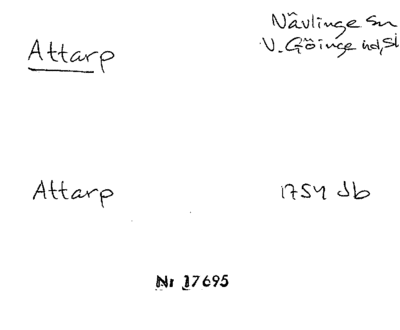 Attarp
Nävlinge sn
V. Göinge hd, Sk
Attarp 1754 Jb
Nr 17695